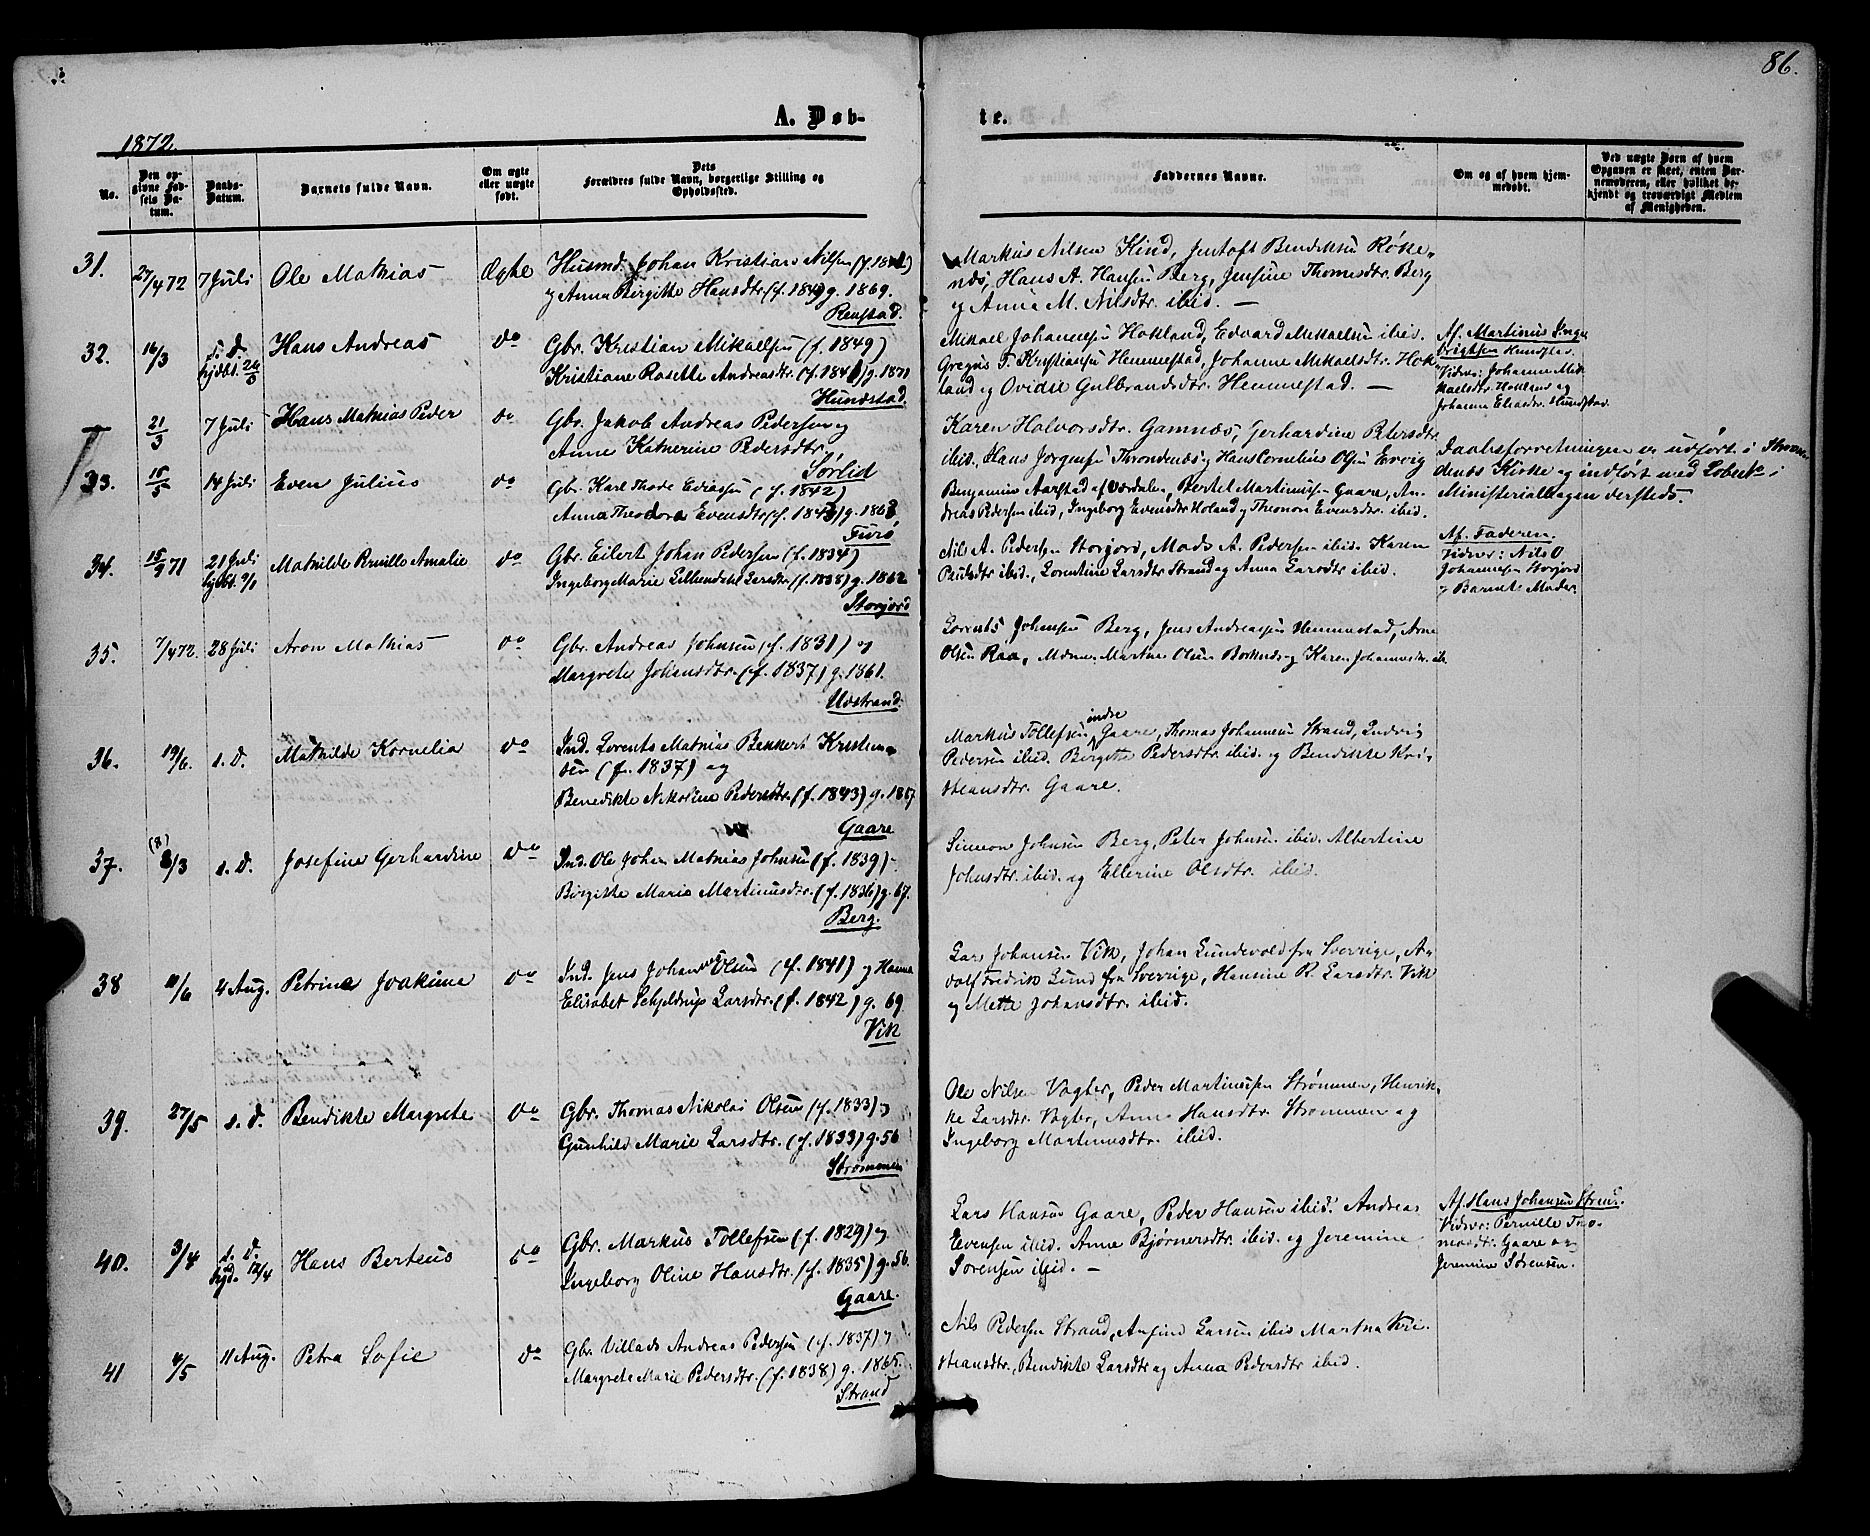 86.
A. Døb-
te.
1872.
No.
Den op-
givne Fød-
sels Da-
tum.
Daabs-
Datum.
Barnets fulde Navn.
Om ægte
eller uægte
født.
Dets
Forældres fulde Navn, borgerlige Stilling og
Opholdssted.
Faddernes Navne.
Om og af hvem hjem-
medøbt.
Ved uægte Børn af hvem
Opgaven er skeet, enten Bar-
nemoderen, eller hvilket be-
kjendt og troværdigt Medlem
af Menigheden.
31.
27/4 72
7 Juli
Ole Mathias
Ægte
Husmd. Johan Kristian Nilsen
og Anna Birgitte Hansdtr. g. 1869.
Renstad.
Markus Nilsen Kind, Jentoft Bendiksen Røke-
næs, Hans A. Hansen Berg, Jensine Thomesdtr. Berg
og Anna M. Nilsdtr. ibid. —
32.
16/3
s. D.
hjdbt.
Hans Andreas
do
Gbr. Kristian Mikaelsen (f. 1849)
Kristiane Rosette Andreasdtr. g. 1871
Hundstad.
Mikael Johannesen Hokland, Edvard Mikkelsen ibid.
Gregus T. Kristiansen Hemmestad, Johanne Mikaelsdtr. Hok-
land og Ovidie Gulbrandsdtr. Hemmestad. —
Af. Martinus Inge-
brigtsen Hundstad.
Vidner: Johanna Mik-
kaelsdtr. Hokland og
Johanna Eliasdtr. Hundstad.
21/3
7 Juli
Hans Mathias Peder
do
Gbr. Jakob Andreas Pedersen og
Anne Katherine Pedersdtr.
Sørlid
Karen Halvorsdtr. Gamnæs, Gerhardine Petersdtr.
ibid., Hans Jørgensen Throndenæs og Hans Cornelius Olsen Ervig
Daabsforretningen er udført i
denæs Kirke og indført med Løbe№ i
Ministerialbogen dersteds.
33.
15/5
14 Juli
Even Julius
do
Gbr. Karl Thode Ediasen (f. 1842)
Anna Theodora Evensdtr.
Furø
Benjamin Aarstad af Værdalen, Bertel Martinussen Gaare, An-
dreas Pedersen ibid, Ingeborg Evensdtr Holand og Theonor Evensdtr. ibid.
34.
15/9 71
21 Juli
hjdbt. 9/1
Mathilde Pernille Amalie
do
Gbr. Eilert Johan Pedersen (f. 1834)
Ingeborg Marie Larsdtr. (f. 1838) g. 1862
Storjord
Nils A. Pedersen Storjord, Mads A. Pedersen ibid. Karen
Paulsdtr ibid., Lorentine Larsdtr Strand og Anna Larsdtr ibid.
Af. Faderen.
Vidner: Nils O
Johannesen Storjord
og Barnets Moder.
35.
7/4 72.
28 Juli
Aron Mathias
do
Gbr. Andreas Johnsen (f. 1831) og
Margrete Johansdtr. (f. 1837) g. 1861.
Udstrand.
Lorents Johnsen Berg, Jens Andreassen Hemmestad, Arne
Olsen Raa, Martine Olsen Borkenæs og Karen Johannesdtr ib.
36.
19/6.
s. D.
Mathilde Kornelia
do
Ind. Lorents Mathias Bekkert Kristian-
sen (f. 1837) og
Benedikte Nikoline Pedersdtr. (f. 1843) g. 1867
Gaare
Markus Tollefsen indre Gaare, Thomas Johannesen Strand, Ludvig
Pedersen ibid. Birgitte Pedersdtr. ibid. og Bendikte Kri-
stiansdtr. Gaare.
37.
(8)
8/3
s. D.
Josefine Gerhardine
do
Ind. Ole Johan Mathias Johnsen (f. 1839)-
Birgitte Marie Martinusdtr. (f. 1836) g. 67.
Berg.
Simeon Johnsen Berg, Peter Johnsen ibid. Albertine
Johnsdtr. ibid. og Ellerine Olsdtr. ibid.
38
11/6
4 Aug.
Petrine Joakima
do
Ind. Jens Johan Olsen (f. 1841) og Hanna
Elisabet Schjeldrup Larsdtr. (f. 1842) g. 69
Vik
Lars Johansen Vik, Johan Lundevold fra Sverrige, An-
dolf Fredrik Lund fra Sverrige, Hansine R. Larsdtr. Vik
og Mette Johansdtr. ibid.
39.
27/5
s. D.
Bendikte Margrete
do
Gbr. Thomas Nikolai Olsen (f. 1833) og
Gunhild Marie Larsdtr. (f. 1833) g. 56
Strømmen
Ole Nilsen Vagter, Peder Martinussen Strømmen, Henrik-
ke Larsdtr. Vagter, Anne Hansdtr. Strømmen og
Ingeborg Martinusdtr. ibid.
40.
3/4
s. D.
hjd. 12/4
Hans Berteus
do
Gbr. Markus Tollefsen (f. 1829) og
Ingeborg Oline Hansdtr. (f. 1835) g. 56.
Gaare.
Lars Hansen Gaare, Peder Hansen ibid. Andreas
Evensen ibid. Anne Bjørnersdtr. ibid. og Jeremine
Sørensen ibid. —
Af. Hans Johansen
Vidner: Pernille Tho-
masdtr. Gaare og
Jeremine Sørensen.
41
4/5
11 Aug.
Petra Sofie
do
Gbr. Villads Andreas Pedersen (f. 1837) og
Margrete Marie Pedersdtr. (f. 1838) g. 1865.
Strand
Nils Pedersen Strand, Anfind Larsen ibid Martha Kri-
stiansdtr., Bendikte Larsdtr og Anna Pedersdtr ibid.